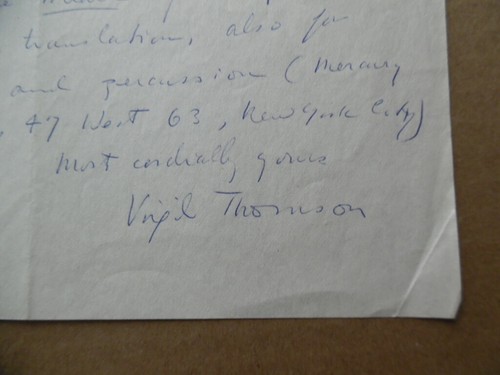 translation, also for
and percussion (Mercury
, 47 West 63, New York City)
Most cordially yours
Virgil Thomson